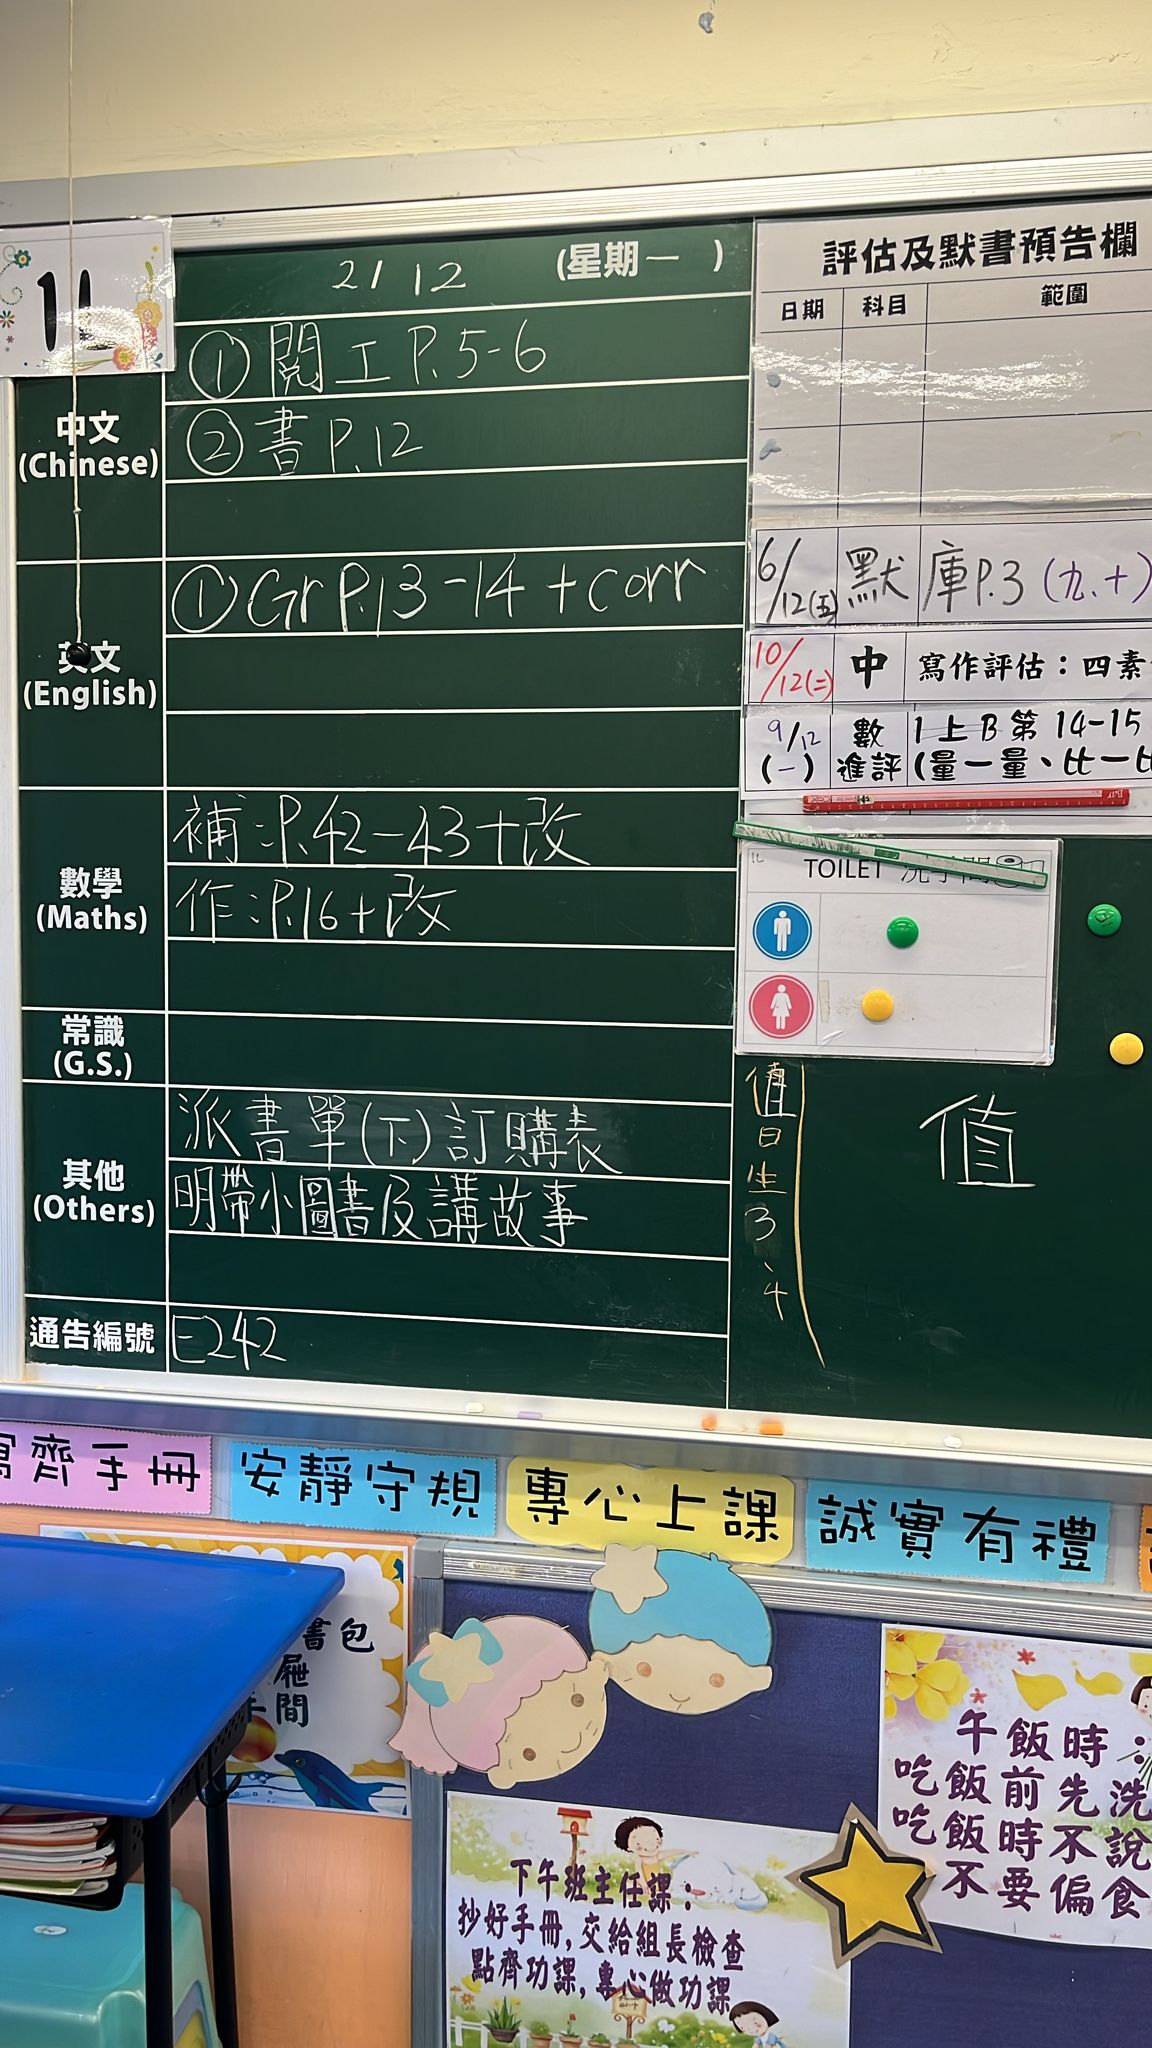 1L
2/12 (星期一)
中文
(Chinese)
① 閱工P.5-6
② 書P.12
英文
(English)
① Gr P.13-14 + corr
數學
(Maths)
補:P.42-43+改
作:P.16+改
常識
(G.S.)
其他
(Others)
派書單(下)訂購表
明帶小圖書及講故事
通告編號
E242
評估及默書預告欄
日期 科目 範圍
6/12(五) 默 庫P.3(九.十)
10/12(二) 中 寫作評估:四素
9/12(一) 數進評 1上B第14-15
(量一量、比一比
1L
TOILET 洗手間
值日生3、4
值
寫齊手冊
安靜守規
專心上課
誠實有禮
書包
屜
間
午飯時:
吃飯前先洗
吃飯時不說
不要偏食
下午班主任課:
抄好手冊,交給組長檢查
點齊功課,專心做功課